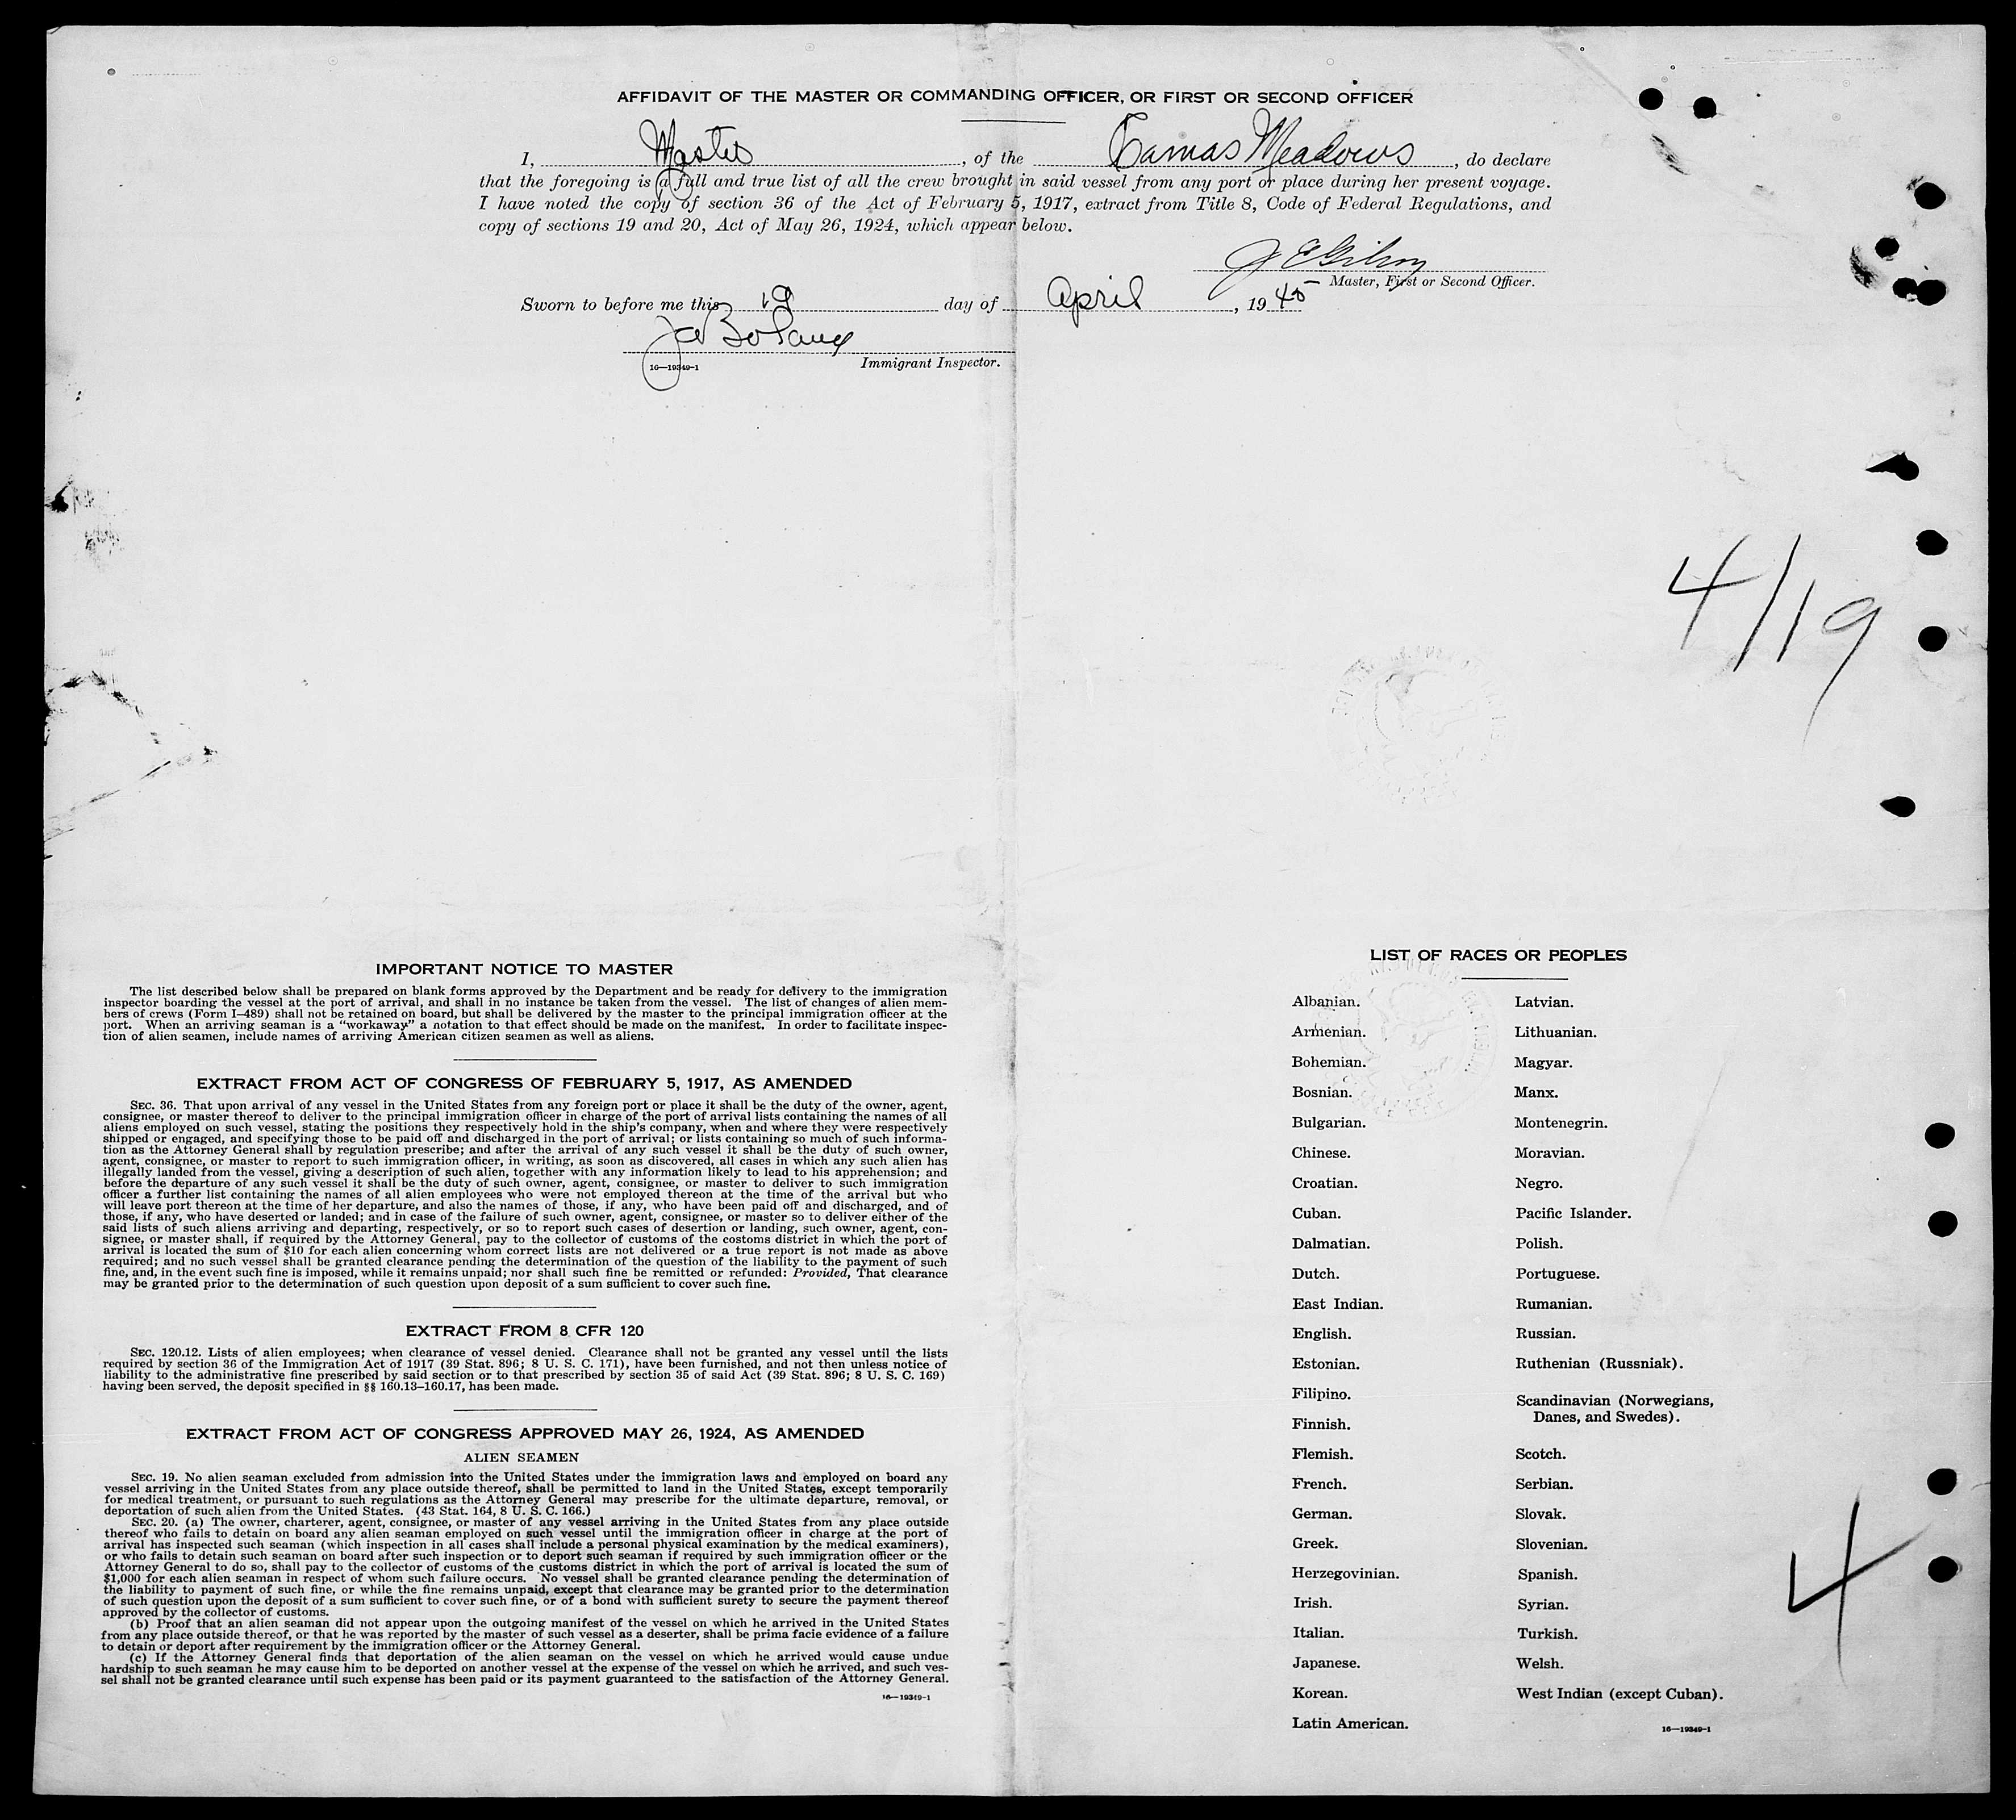 AFFIDAVIT OF THE MASTER OR COMMANDING OFFICER, OR FIRST OR SECOND OFFICER
I, Master, of the Camas Meadows, do declare
that the foregoing is a full and true list of all the crew brought in said vessel from any port or place during her present voyage.
I have noted the copy of section 36 of the Act of February 5, 1917, extract from Title 8, Code of Federal Regulations, and
copy of sections 19 and 20, Act of May 26, 1924, which appear below.
Master, First or Second Officer.
Sworn to before me this 19 day of April, 1945
Immigrant Inspector.
16—19349-1
4/19
IMPORTANT NOTICE TO MASTER
The list described below shall be prepared on blank forms approved by the Department and be ready for delivery to the immigration
inspector boarding the vessel at the port of arrival, and shall in no instance be taken from the vessel. The list of changes of alien mem-
bers of crews (Form I-489) shall not be retained on board, but shall be delivered by the master to the principal immigration officer at the
port. When an arriving seaman is a "workaway" a notation to that effect should be made on the manifest. In order to facilitate inspec-
tion of alien seamen, include names of arriving American citizen seamen as well as aliens.
EXTRACT FROM ACT OF CONGRESS OF FEBRUARY 5, 1917, AS AMENDED
SEC. 36. That upon arrival of any vessel in the United States from any foreign port or place it shall be the duty of the owner, agent,
consignee, or master thereof to deliver to the principal immigration officer in charge of the port of arrival lists containing the names of all
aliens employed on such vessel, stating the positions they respectively hold in the ship's company, when and where they were respectively
shipped or engaged, and specifying those to be paid off and discharged in the port of arrival; or lists containing so much of such informa-
tion as the Attorney General shall by regulation prescribe; and after the arrival of any such vessel it shall be the duty of such owner,
agent, consignee, or master to report to such immigration officer, in writing, as soon as discovered, all cases in which any such alien has
illegally landed from the vessel, giving a description of such alien, together with any information likely to lead to his apprehension; and
before the departure of any such vessel it shall be the duty of such owner, agent, consignee, or master to deliver to such immigration
officer a further list containing the names of all alien employees who were not employed thereon at the time of the arrival but who
will leave port thereon at the time of her departure, and also the names of those, if any, who have been paid off and discharged, and of
those, if any, who have deserted or landed; and in case of the failure of such owner, agent, consignee, or master so to deliver either of the
said lists of such aliens arriving and departing, respectively, or so to report such cases of desertion or landing, such owner, agent, con-
signee, or master shall, if required by the Attorney General, pay to the collector of customs of the costoms district in which the port of
arrival is located the sum of $10 for each alien concerning whom correct lists are not delivered or a true report is not made as above
required; and no such vessel shall be granted clearance pending the determination of the question of the liability to the payment of such
fine, and, in the event such fine is imposed, while it remains unpaid; nor shall such fine be remitted or refunded: Provided, That clearance
may be granted prior to the determination of such question upon deposit of a sum sufficient to cover such fine.
EXTRACT FROM 8 CFR 120
SEC. 120.12. Lists of alien employees; when clearance of vessel denied. Clearance shall not be granted any vessel until the lists
required by section 36 of the Immigration Act of 1917 (39 Stat. 896; 8 U. S. C. 171), have been furnished, and not then unless notice of
liability to the administrative fine prescribed by said section or to that prescribed by section 35 of said Act (39 Stat. 896; 8 U. S. C. 169)
having been served, the deposit specified in §§ 160.13–160.17, has been made.
EXTRACT FROM ACT OF CONGRESS APPROVED MAY 26, 1924, AS AMENDED
ALIEN SEAMEN
SEC. 19. No alien seaman excluded from admission into the United States under the immigration laws and employed on board any
vessel arriving in the United States from any place outside thereof, shall be permitted to land in the United States, except temporarily
for medical treatment, or pursuant to such regulations as the Attorney General may prescribe for the ultimate departure, removal, or
deportation of such alien from the United States. (43 Stat. 164, 8 U. S. C. 166.)
SEC. 20. (a) The owner, charterer, agent, consignee, or master of any vessel arriving in the United States from any place outside
thereof who fails to detain on board any alien seaman employed on such vessel until the immigration officer in charge at the port of
arrival has inspected such seaman (which inspection in all cases shall include a personal physical examination by the medical examiners),
or who fails to detain such seaman on board after such inspection or to deport such seaman if required by such immigration officer or the
Attorney General to do so, shall pay to the collector of customs of the customs district in which the port of arrival is located the sum of
$1,000 for each alien seaman in respect of whom such failure occurs. No vessel shall be granted clearance pending the determination of
the liability to payment of such fine, or while the fine remains unpaid, except that clearance may be granted prior to the determination
of such question upon the deposit of a sum sufficient to cover such fine, or of a bond with sufficient surety to secure the payment thereof
approved by the collector of customs.
(b) Proof that an alien seaman did not appear upon the outgoing manifest of the vessel on which he arrived in the United States
from any place outside thereof, or that he was reported by the master of such vessel as a deserter, shall be prima facie evidence of a failure
to detain or deport after requirement by the immigration officer or the Attorney General.
(c) If the Attorney General finds that deportation of the alien seaman on the vessel on which he arrived would cause undue
hardship to such seaman he may cause him to be deported on another vessel at the expense of the vessel on which he arrived, and such ves-
sel shall not be granted clearance until such expense has been paid or its payment guaranteed to the satisfaction of the Attorney General.
16—19349-1
LIST OF RACES OR PEOPLES
Albanian.
Armenian.
Bohemian.
Bosnian.
Bulgarian.
Chinese.
Croatian.
Cuban.
Dalmatian.
Dutch.
East Indian.
English.
Estonian.
Filipino.
Finnish.
Flemish.
French.
German.
Greek.
Herzegovinian.
Irish.
Italian.
Japanese.
Korean.
Latin American.
Latvian.
Lithuanian.
Magyar.
Manx.
Montenegrin.
Moravian.
Negro.
Pacific Islander.
Polish.
Portuguese.
Rumanian.
Russian.
Ruthenian (Russniak).
Scandinavian (Norwegians,
Danes, and Swedes).
Scotch.
Serbian.
Slovak.
Slovenian.
Spanish.
Syrian.
Turkish.
Welsh.
West Indian (except Cuban).
16—19349-1
4